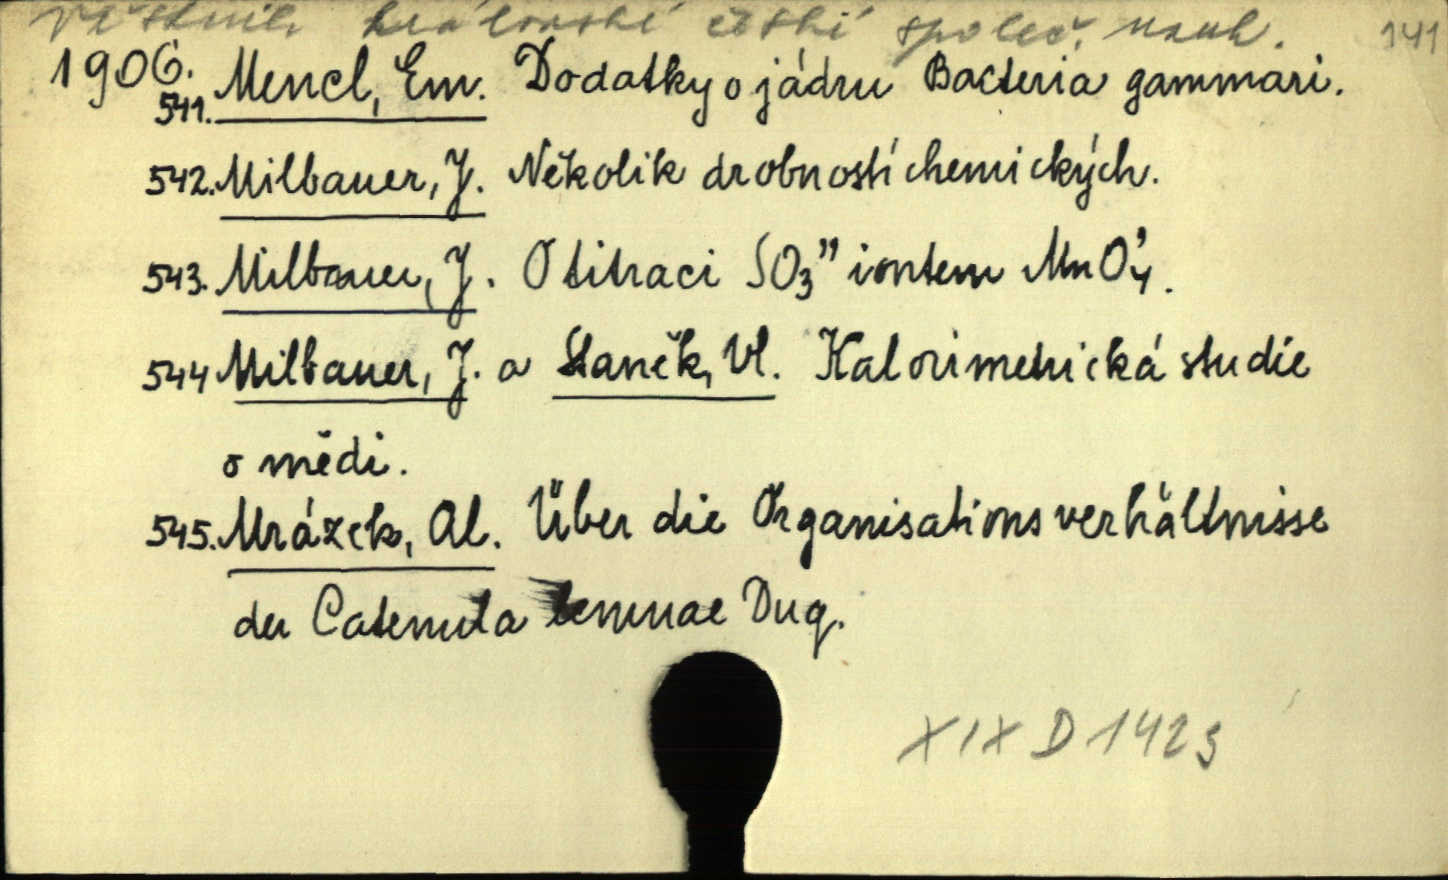 Věstník královské české společ. nauk. 141
1906. Mencl, Em. Dodatky o jádru Bacteria gammari.
541.
542. Milbauer, J. Několik drobností chemických.
543. Milbauer, J. O titraci SO3" iontem MnO4'.
544 Milbauer, J. a Staněk, Vl. Kalorimetrická studie
o mědi.
545. Mrázek, Al. Über die Organisationsverhältnisse
der Catenula lemnae Dug.
XIX D 1423